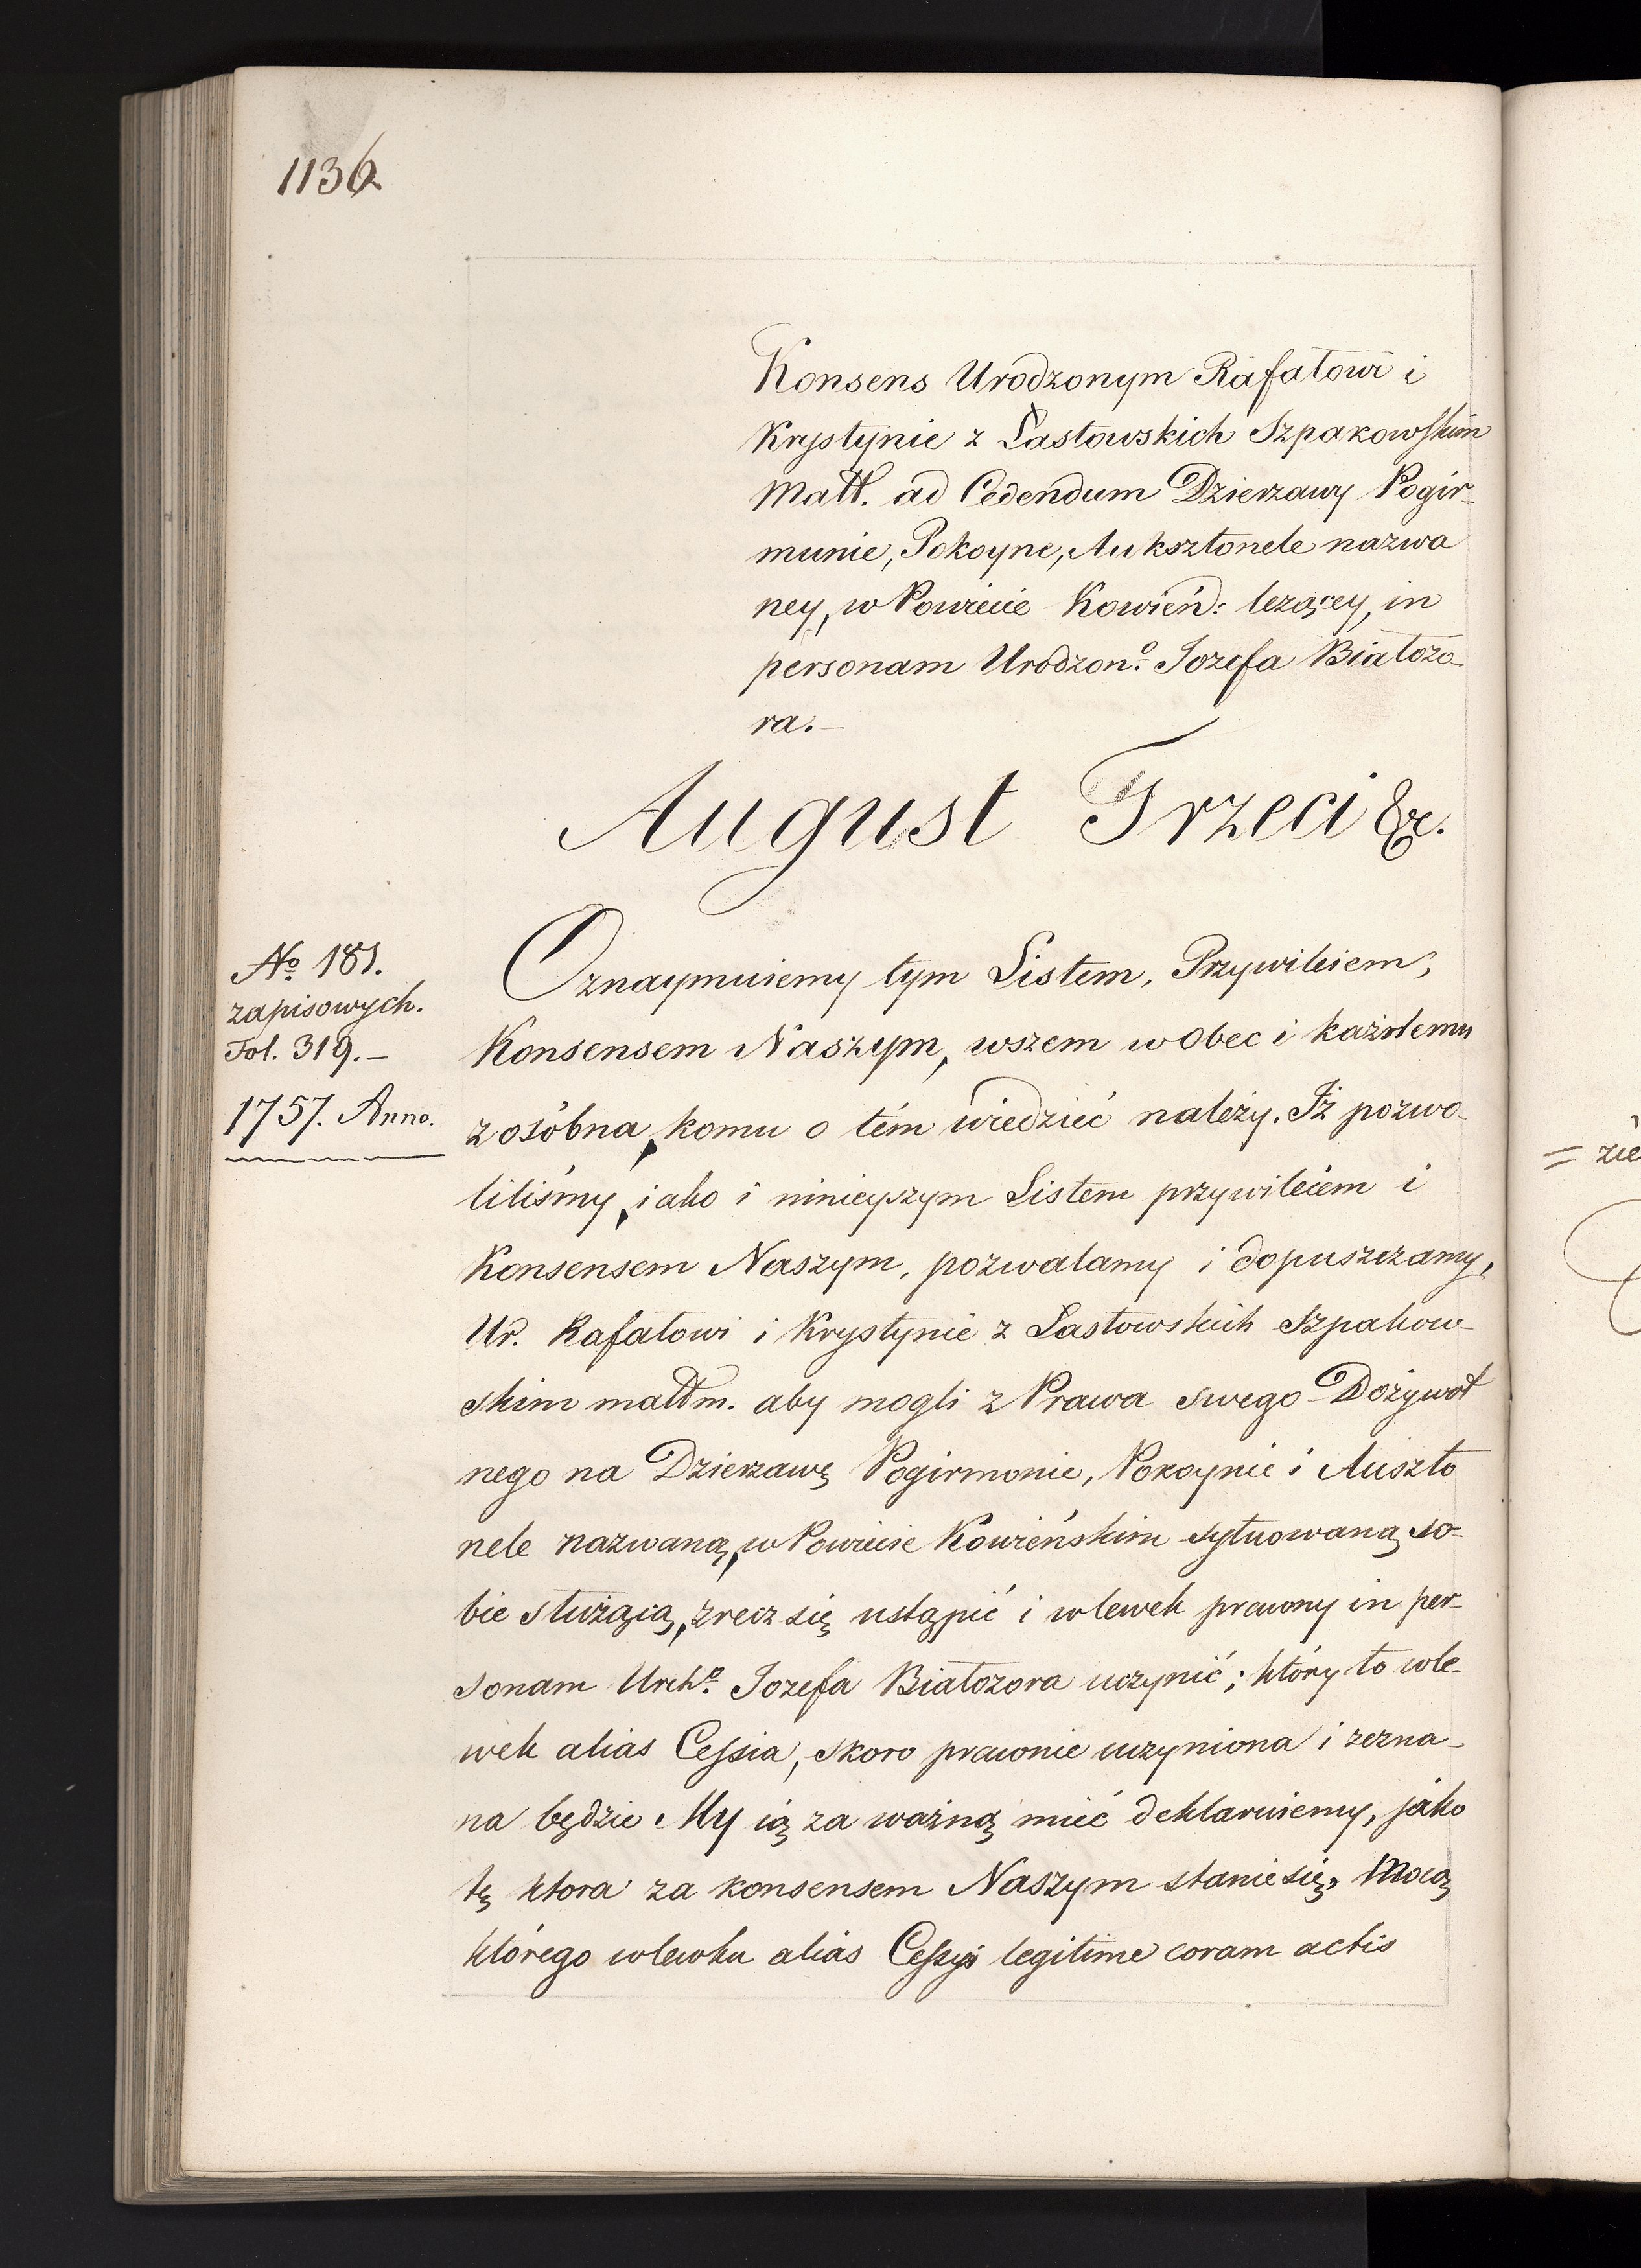 1136.
Konsens Urodzonym Rafałowi i
Krystynie z Łastowskich Szpakowskim
Małł. ad Cedendum Dzierzawy Pogir-
munie, Pokoyne, Auksztonele nazwa
ney, w Powiecie Kowień: leżącey, in
personam Urodzonº Jozefa Białozo-
ra.-
August Trzeci &c.
Nº 181.
zapisowych.
Fol. 319.-
1757. Anno.
Oznaymuiemy tym Listem, Przywileiem,
Konsensem Naszym, wszem wobec i każdemu
zosóbna, komu o tém wiedzieć należy. Iż pozwo-
liliśmy, iako i ninieyszym Listem przywileiem i
Konsensem Naszym, pozwalamy i dopuszczamy,
Ur. Rafałowi i Krystynie z Łastowskich Szpakow-
skim małłm. aby mogli z Prawa swego Dożywot
nego na Dzierzawę Pogirmonie, Pokoynie i Auszto
nele nazwaną, w Powiecie Kowieńskim sytuowaną so-
bie służącą, zrecz się ustąpić i wlewek prawny in per-
sonam Jozefa Białozora uczynić; który to wle-
wek alias Cessia, skoro prawnie uczyniona i zezna-
na będzie My ią za ważną mieć deklaruiemy, jako
tę ktora za konsensem Naszym stanie się, Mocą
którego wlewku alias Cessyi legitime coram actis
= zie